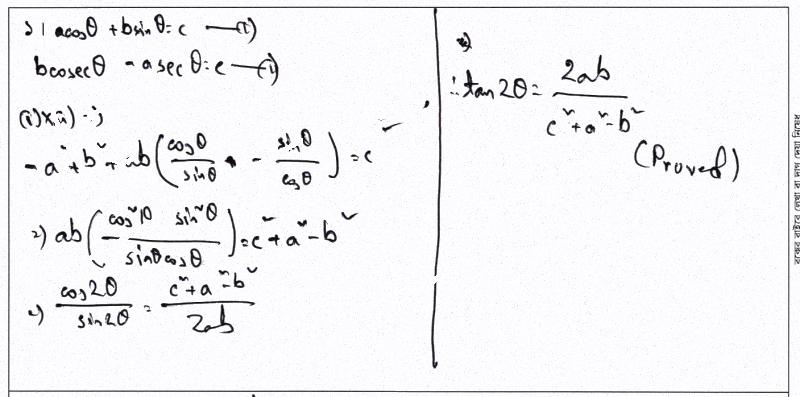 ১। acosθ + bsinθ = c —(i)
bcosecθ - asecθ = c —(ii)
(i)×(ii) ⇒
-a² + b² + ab(cosθ/sinθ - sinθ/cosθ) = c²
⇒ ab(cos²θ - sin²θ / sinθcosθ) = c² + a² - b²
⇒ cos2θ/sin2θ = c² + a² - b²/2ab
∴ tan2θ = 2ab/c² + a² - b²
(Proved)